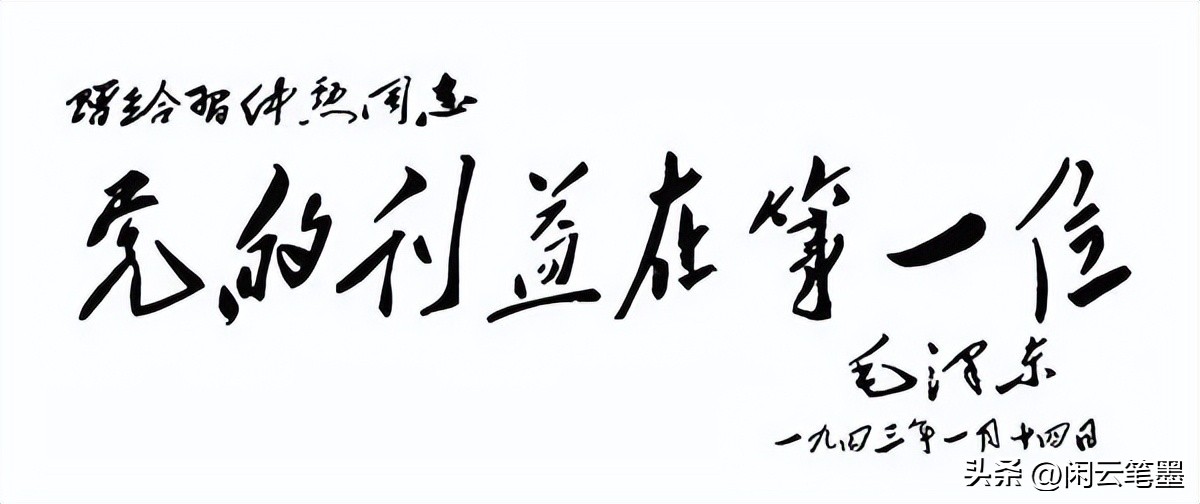 赠给习仲勋同志
党的利益在第一位
毛泽东
一九四三年一月十四日
头条 @闲云笔墨